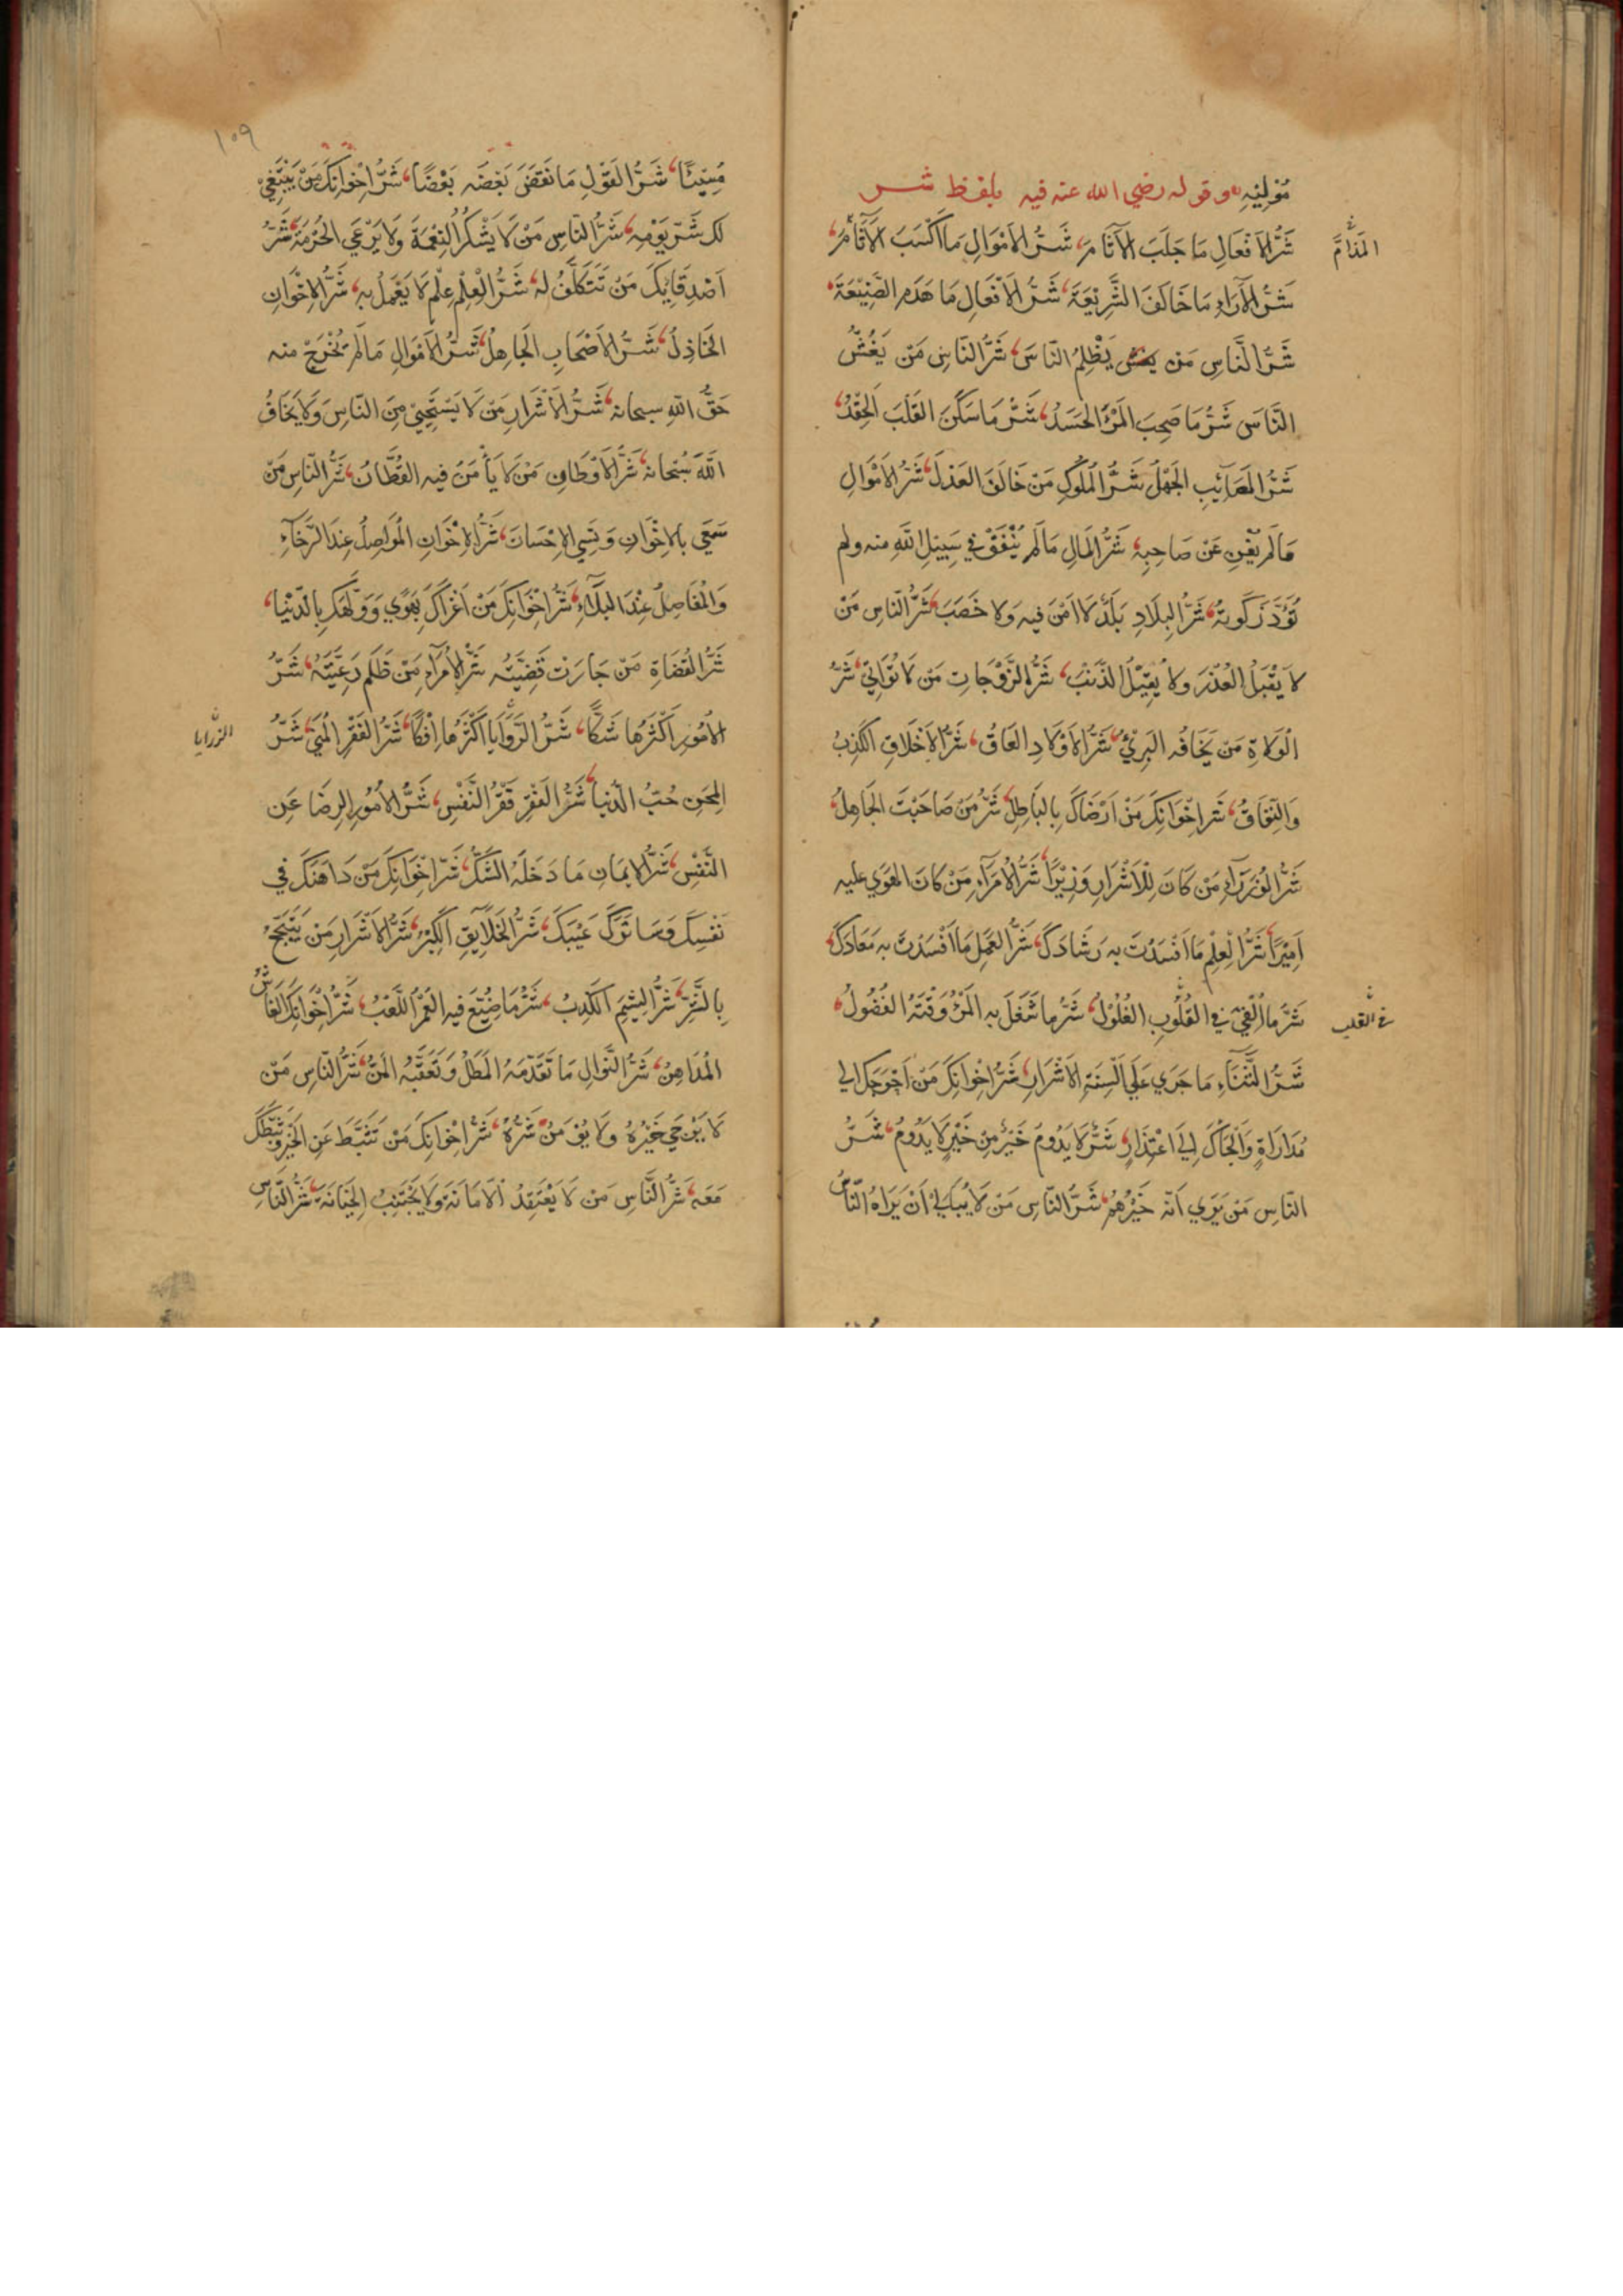 مُوْلِيْهِ وقوله رضي الله عنه فيه بلفظ شر
شَرُّ الاَفْعَالِ مَا جَلَبَ الآثَامَ شَرُّ الاَمْوَالِ مَا اكْسَبَ الآثَامَ
المَذَامَّ
شَرُّ الآرَاءِ مَا خَالَفَ الشَّرِيْعَةَ شَرُّ الاَفْعَالِ مَا هَدَمَ الصَّنِيْعَةَ
شَرُّ النَّاسِ مَنْ يَظْلِمُ النَّاسَ شَرُّ النَّاسِ مَنْ يَغُشُّ
النَّاسَ شَرُّ مَا صَحِبَ المَرْءَ الحَسَدُ شَرُّ مَا سَكَنَ القَلْبَ الحِقْدُ
شَرُّ المَصَائِبِ الجَهْلُ شَرُّ المُلُوكِ مَنْ خَالَفَ العَدْلَ شَرُّ الاَمْوَالِ
مَا لَمْ يُغْنِ عَنْ صَاحِبِهِ شَرُّ المَالِ مَا لَمْ يُنْفَقْ فِي سَبِيْلِ اللهِ منه ولم
تُؤَدَّ زَكَوتُهُ شَرُّ البِلَادِ بَلَدٌ لَا اَمْنَ فِيهِ وَلا خَصَبَ شَرُّ النَّاسِ مَنْ
لا يَقْبَلُ العُذْرَ وَلا يُقِيْلُ الذَّنْبَ شَرُّ الزَّوْجَاتِ مَنْ لَا تُوَاتِيْ شَرُّ
الْوَلاةِ مَنْ يَخَافُه البَرِيْءُ شَرُّ الاَوْلَادِ العَاقُ شَرُّ الاَخْلَاقِ الكَذِبُ
وَالنِّفَاقُ شَر اخْوَانِكَ مَنْ اَرْضَاكَ بِالبَاطِلِ شَرُّ مَنْ صَاحَبْتَ الجَاهِلُ
شَرُّ الوُزَرَآءِ مَنْ كَانَ لِلْاَشْرَارِ وَزِيْرًا شَرُّ الاُمَرَآءِ مَنْ كَانَ الهَوَي عليه
اَمِيْرًا شَرُّ الْعِلْمِ مَا اَفْسَدْتَ بِهِ رَشَادَكَ شَرُّ العَمَلِ مَا اَفْسَدْتَ بِهِ مَعَادَكَ
شَرُّ مَا اُلْقِيَ فِي القُلُوبِ الغُلُوْلُ شَرُّ ما شَغَلَ بِهِ المَرْءُ وَقْتَهُ الفُضُولُ
في القلب
شَرُّ الثَّنَاءِ مَا جَرَي عَلَي اَلْسِنَةِ الاَشْرَارِ شَرُّ اخْوَانِكَ مَنْ اَحْوَجَكَ الي
مُدَارَاةٍ وَاَلْجَاكَ اِلَي اعْتِذَارٍ شَرٌّ لَا يَدُومُ خَيْرٌ مِنْ خَيْرٍ لَا يَدُومُ شَرُّ
النَّاسِ مَنْ يَرَي اَنَّه خَيْرُهُمْ شَرُّ النَّاسِ مَنْ لَا يُبَالِي اَنْ يَرَاهُ النَّاسُ
١٠٩
مُسِيْئًا شَرُّ القَوْلِ مَا نَقَضَ بَعْضُه بَعْضًا شَرُّ اِخْوَانِكَ مَنْ يَبْتَغِيْ
لك شَرَّ يَوْمِهِ شَرُّ النَّاسِ مَنْ لَا يَشْكُرُ النِعْمَةَ وَلَا يَرْعَي الحُرْمَةَ شَرُّ
اَصْدِقَائِكَ مَنْ تَتَكَلَّفُ لَهُ شَرُّ الْعِلْمِ عِلْمٌ لَا يَعْمَلُ بِهِ شَرُّ الاِخْوَانِ
الخَاذِلُ شَرُّ الاَصْحَابِ الجَاهِلُ شَرُّ الاَمْوَالِ مَا لَمْ يُخْرَجْ منه
حَقُّ اللهِ سبحانه شَرُّ الاَشْرَارِ مَنْ لَا يَسْتَحْيِيْ مِنَ النَّاسِ وَلَا يَخَافُ
اللهَ سُبْحَانه شَرُّ الاَوْطَانِ مَنْ لا يَأْمَنُ فِيهِ القُطَّانُ شَرُّ النَّاسِ مَنْ
سَعَي بِالاِخْوَانِ وَنَسِيَ الاِحْسَانَ شَرُّ الاِخْوَانِ المُوَاصِلُ عِنْدَ الرَّخَآءِ
وَالمُفَاصِلُ عِنْدَ البَلَآءِ شَرُّ اخْوَانِكَ مَنْ اَغْرَاكَ بِهَوًي وَوَلَّهَكَ بِالدُّنْيَا
شَرُّ القُضَاةِ مَنْ جَارَتْ قَضِيَّتُه شَرُّ الاُمَرَآءِ مَنْ ظَلَمَ رَعِيَّتَهُ شَرُّ
الاُمُورِ اَكْثَرُهَا شَكًّا شَرُّ الرِّوَايَا اَكْثَرُهَا اِفْكًا شَرُّ الفَقْرِ المُنَي شَرُّ
المِحَنِ حُبُّ الدُّنْيَا شَرُّ الفَقْرِ فَقْرُ النَّفْسِ شَرُّ الاُمُورِ الرِضَا عَنِ
النَّفْسِ شَرُّ الاِيْمَانِ مَا دَخَلَهُ الشَّكُّ شَرُّ اخْوَانِكَ مَنْ دَاهَنَكَ في
نَفْسِكَ وَسَاتَرَكَ عَيْبَكَ شَرُّ الخَلَآئِقِ الكِبْرُ شَرُّ الاَشْرَارِ مَنْ يَتَبَجَّحُ
بِالشَّرِّ شَرُّ الشِيَمِ الكَذِبُ شَرُّ مَا ضُيِّعَ فِيهِ العُمْرُ اللَّعْبُ شَرُّ اِخْوَانِكَ الغَاشُّ
المُدَاهِنُ شَرُّ النَّوَالِ مَا تَقَدَّمَهُ المَطْلُ وَتَعَقَّبَهُ المَنُّ شَرُّ النَّاسِ مَنْ
لَا يُرْجَي خَيْرُهُ وَلَا يُؤْمَنُ شَرُّهُ شَرُّ اخْوَانِكَ مَنْ تَثَبَّطَ عَنِ الخَيْرِ وَثَبَّطَكَ
مَعَهُ شَرُّ النَّاسِ مَنْ لَا يَعْتَقِدُ الاَمَانَةَ وَلَا يَجْتَنِبُ الخِيَانَةَ شَرُّ النَّاسِ